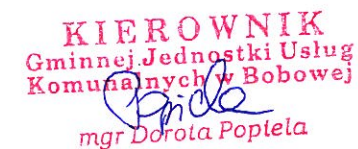 KIEROWNIK
Gminnej Jednostki Usług
Komunalnych w Bobowej
mgr Dorota Popiela